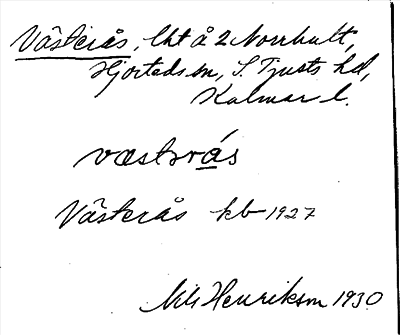 Västerås, lht å 2 Norrhult,
Hjorteds sn, S. Tjusts hd,
Kalmar l.
væstərås
Västerås kb 1927
Nils Henrikson 1930